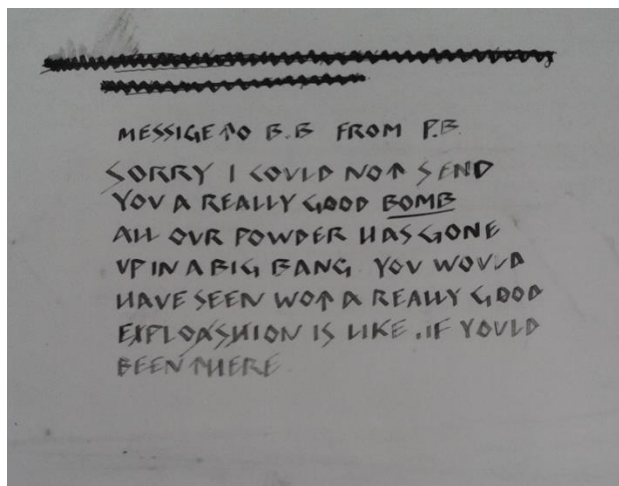 MESSIGE TO B.B FROM P.B.
SORRY I COULD NOT SEND
YOU A REALLY GOOD BOMB
ALL OUR POWDER HAS GONE
UP IN A BIG BANG. YOU WOULD
HAVE SEEN WOT A REALLY GOOD
EXPLOASHION IS LIKE .IF YOULD
BEEN THERE